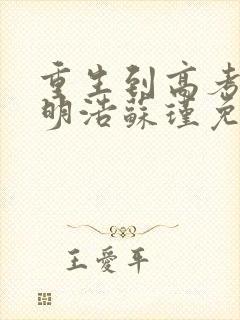 重生到高考
明浩蘇瑾免
王愛平